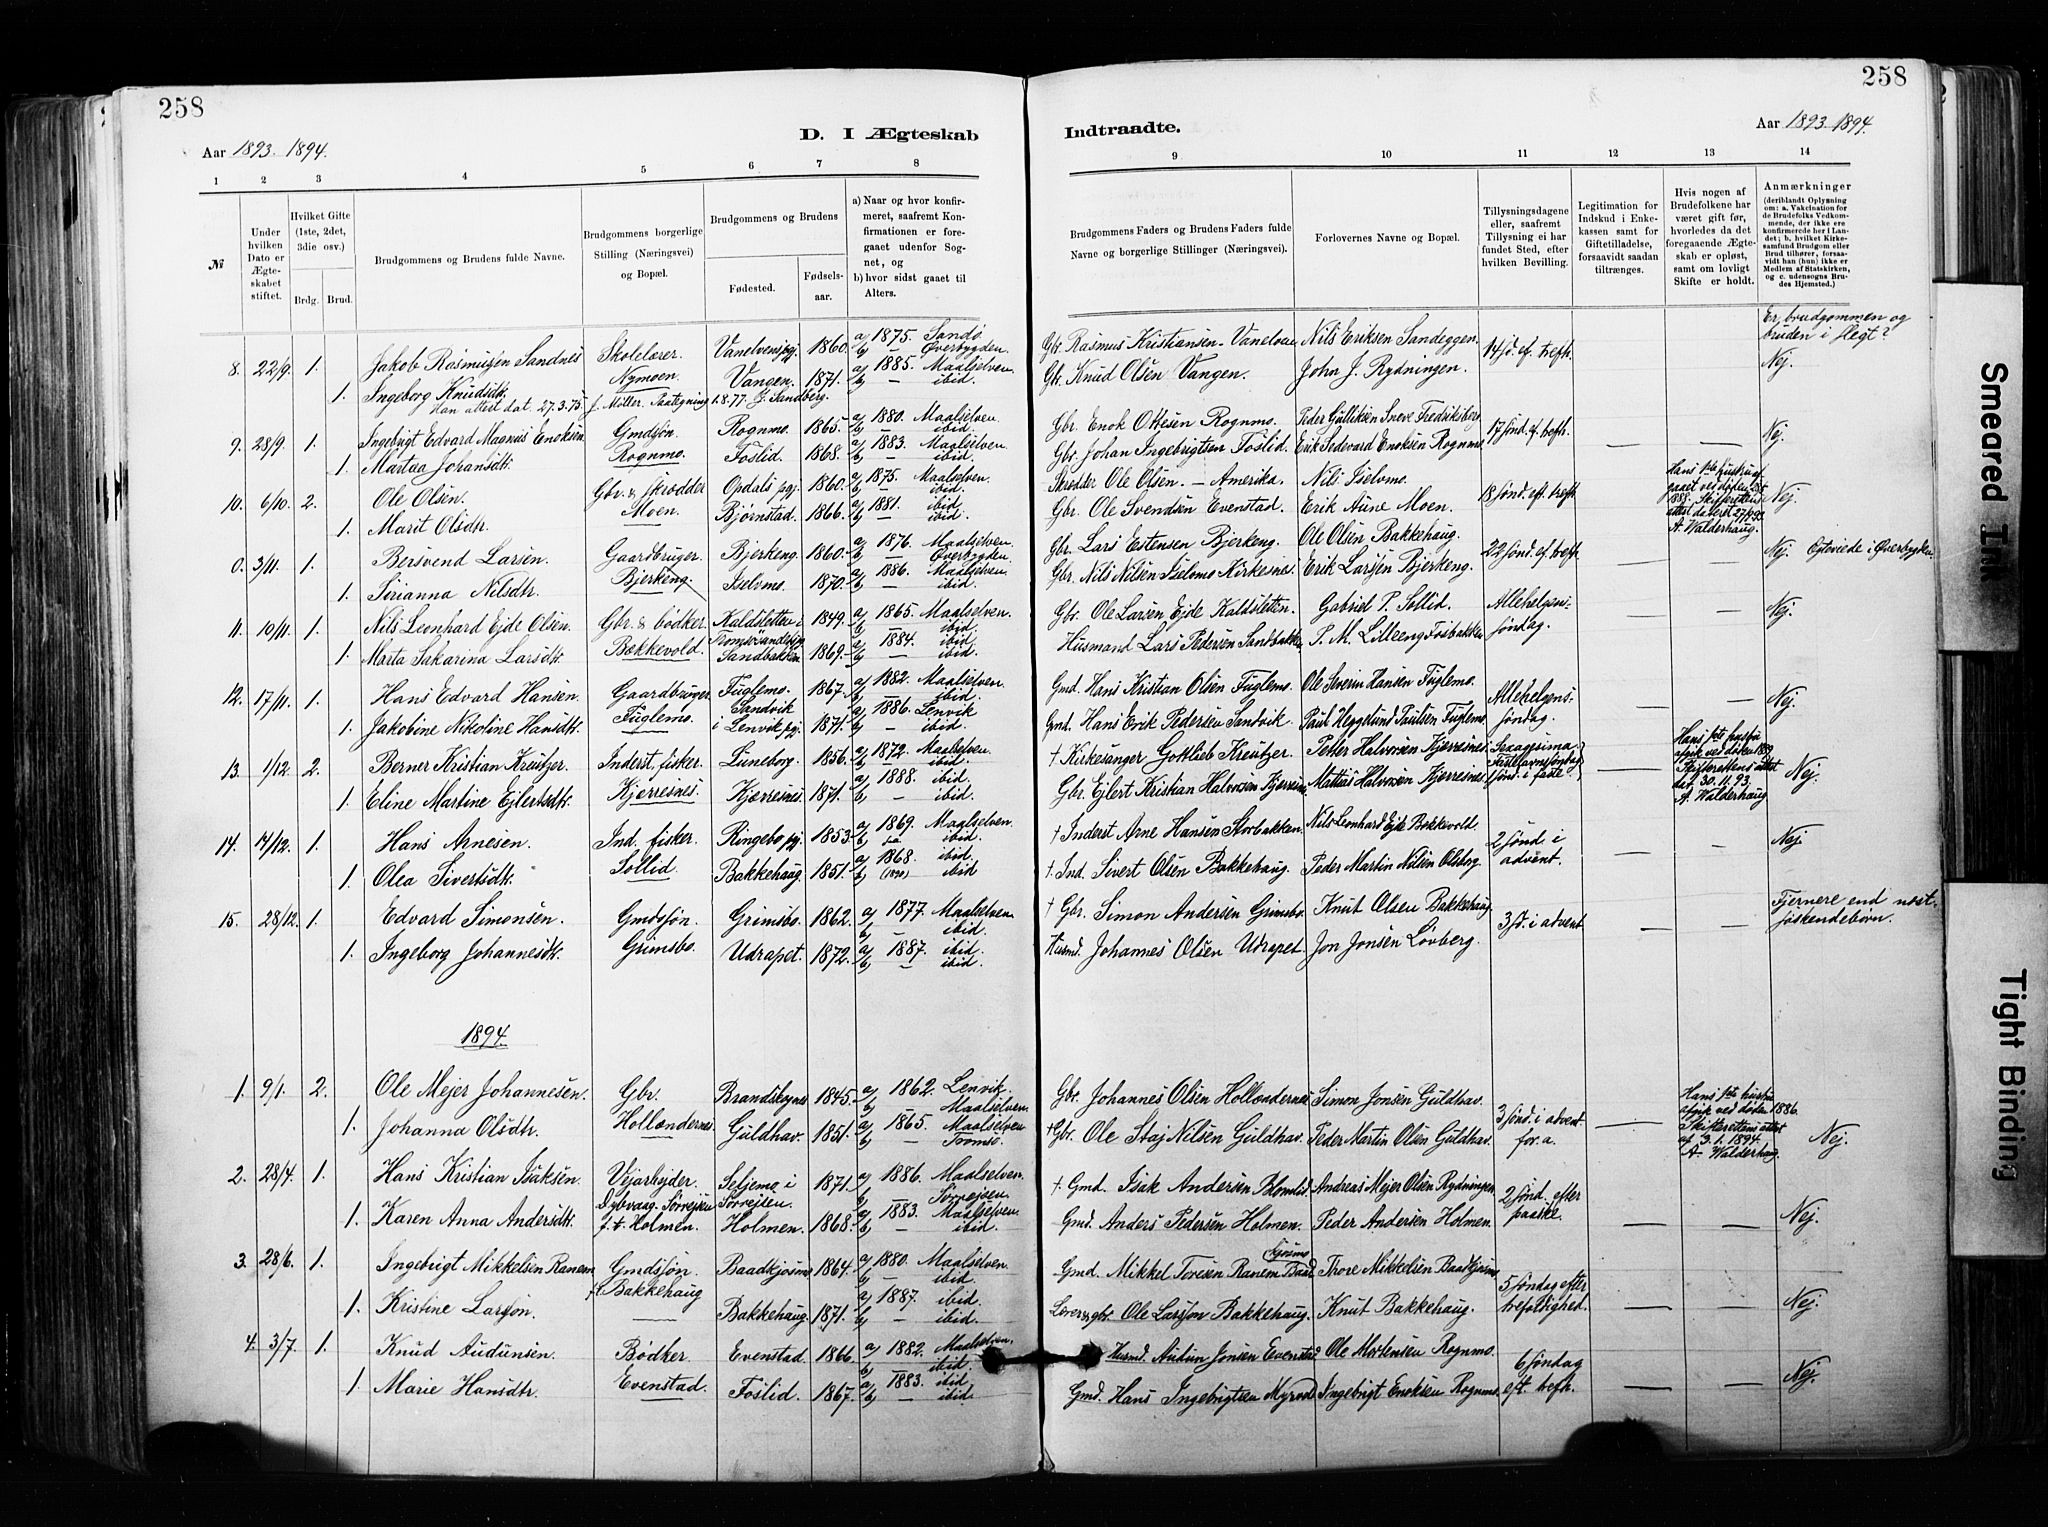 258
Aar 1893. 1894.
D. I Ægteskab
1 2 3 4 5 6 7 8
№
Under hvilken Dato er Ægteskabet stiftet.
Hvilket Gifte (1ste, 2det, 3die osv.)
Brdg. Brud.
Brudgommens og Brudens fulde Navne.
Brudgommens borgerlige Stilling (Næringsvei) og Bopæl.
Brudgommens og Brudens
Fødested. Fødselsaar.
a) Naar og hvor konfirmeret, saafremt Konfirmationen er foregaaet udenfor Sognet, og
b) hvor sidst gaaet til Alters.
8. 22/9. 1. Jakob Rasmusen Sandnes Skolelærer. Vanelvens pgj. 1860. a) 1875. Sandø
Nymoen. b) — Øverbygden
1. Ingeborg Knudsdtr. Vangen. 1871. a) 1885. Maalselven
b) — ibid.
Han attest dat. 27.3.75 J. Møller. Paategning 1.8.77. G. Sandberg.
9. 28/9. 1. Ingebrigt Edvard Magnus Enoksen. Gmdsøn Rognmo. 1865. a) 1880. Maalselven
Rognmo. b) — ibid.
1. Martaa Johansdtr. Foslid. 1868. a) 1883. Maalselven
b) — ibid.
10. 6/10. 2. Ole Olsen. Gbr. & Skrædder Opdals pgj. 1860. a) 1875. Maalselven.
Moen. b) — ibid.
1. Marit Olsdtr. Bjørnstad. 1866. a) 1881. ibid
b) — ibid.
0. 3/11. 1. Bersvend Larsen. Gaardbruger. Bjerkeng. 1860. a) 1876. Maalselven
Bjerkeng. b) — Øverbygden
1. Sørianna Nilsdtr. Iselvmo. 1870. a) 1886. Maalselven
b) — ibid.
11. 10/11. 1. Nils Leonhard Ejde Olsen. Gbr. & bødker. Kaldsletten i 1849. a) 1865. Maalselven.
Bækkevold. Tromsøsundets pgj b) — ibid
1. Marta Sakarina Larsdtr. Sandbakken 1869. a) 1884. ibid
b) — ibid.
12. 17/11. 1. Hans Edvard Hansen. Gaardbruger Fuglemo. 1867. a) 1882. Maalselven
Fuglemo. b) — ibid.
1. Jakobine Nikoline Hansdtr. Sandvik i Lenvik pgj. 1871. a) 1886. Lenvik
b) — ibid.
13. 1/12. 2. Berner Kristian Kreutzer. Inderst. fisker. Luneborg. 1856. a) 1872. Maalselven.
Kjærresnes. b) — ibid.
1. Eline Martine Ejlertsdtr. Kjærresnes 1871. a) 1888. ibid.
b) — ibid.
14. 14/12. 1. Hans Arnesen. Ind. fisker. Ringebo pgj. 1853. a) 1869. Maalselven
Sollid. b) ibid.
1. Olea Sivertsdtr. Bakkehaug. 1851. a) 1868. ibid.
b) ibid
15. 28/12. 1. Edvard Simonsen. Gmdsøn. Grimsbo. 1862. a) 1877. Maalselven
Grimsbo. b) — ibid.
1. Ingeborg Johannesdtr. Udrapet. 1872. a) 1887. ibid.
b) — ibid.
1894.
1. 9/1. 2. Ole Mejer Johannesen. Gbr. Brandskognes 1845. a) 1862. Lenvik.
Hollændernes. b) — Maalselven.
1. Johanna Olsdtr. Guldhav. 1851. a) 1865. Maalselven
b) — Tromsø.
2. 28/4. 1. Hans Kristian Isaksen. Vejarbejder. Seljemo i 1871. a) 1886. Maalselven.
Dybvaag. Sørrejsen Sørrejsen b) — Sørrejsen
1. Karen Anna Andersdtr. f.t. Holmen. Holmen. 1868. a) 1883. Maalselven
b) — ibid.
3. 28/6. 1. Ingebrigt Mikkelsen Ranem Gmdsøn. Baadkjosmo 1864. a) 1880. Maalselven.
Bakkehaug b) — ibid.
1. Kristine Larsøn. Bakkehaug. 1871. a) 1887. ibid.
b) — ibid.
4. 3/7. 1. Knud Audunsen. Bødker. Evenstad. 1866. a) 1882. Maalselven.
Evenstad. b) — ibid.
1. Marie Hansdtr. Foslid. 1867. a) 1883. ibid.
b) — ibid.
258
Indtraadte.
Aar 1893. 1894.
9 10 11 12 13 14
Brudgommens Faders og Brudens Faders fulde Navne og borgerlige Stillinger (Næringsvei).
Forlovernes Navne og Bopæl.
Tillysningsdagene eller, saafremt Tillysning ei har fundet Sted, efter hvilken Bevilling.
Legitimation for Indskud i Enkekassen samt for Giftetilladelse, forsaavidt saadan tiltrænges.
Hvis nogen af Brudefolkene har været gift før, hvorledes da det foregaaende Ægteskab er opløst, samt om lovligt Skifte er holdt.
Anmærkninger (deriblandt Oplysning om: a. Vakcination for de Brudefolks Vedkommende, der ikke ere konfirmerede her i Landet; b. hvilket Kirkesamfund Brudgom eller Brud tilhører, forsaavidt han (hun) ikke er Medlem af Statskirken, og c. udensogns Brudes Hjemsted.)
Er brudgommen og bruden i slegt?
Gbr. Rasmus Kristiansen - Vanelven Nils Eriksen Sandeggen. 14 s. ef. trefh. Nej.
Gbr. Knud Olsen Vangen. John J. Rydningen.
Gbr. Enok Ottesen Rognmo. Peder Gulliksen Sneve Fredriksberg 17 sønd. ef. trefh. — — Nej
Gbr. Johan Ingebrigtsen Foslid. Erik Sedevard Enoksen Rognmo.
Skredder Ole Olsen. - Amerika. Nils Iselvmo. 18 sønd. eft trefh — Nej
Gbr. Ole Svendsen Evenstad. Erik Aune Moen.
A. Walderhaug.
Gbr. Lars Estensen Bjerkeng. Ole Olsen Bakkehaug. 22 sønd. ef. trefh — — Nej. Optoviede i Øverbygden
Gbr. Nils Nilsen Iselvmo Kirkesnes. Erik Larsen Bjerkeng.
Gbr. Ole Larsen Ejde Kaldsletten. Gabriel P. Sollid. Allehelgenssøndag. — — Nej.
Husmand Lars Pedersen Sandbakken P. M. Lilleeng Fosbakken
Gmd. Hans Kristian Olsen Fuglemo. Ole Severin Hansen Fuglemo. Allehelgenssøndag. — — Nej.
Gmd. Hans Erik Pedersen Sandvik. Paul Heggelund Paulsen Fuglemo
† Kirkesanger Gottlieb Kreutzer. Petter Halvorsen Kjerresnes Sexagesima Fastelavnssøndag 1 sønd. i faste — Hans 1ste hustru afgik ved døden 1889 Skifterettens attest dat. 30.11.93. A. Walderhaug Nej.
Gbr. Ejlert Kristian Halvorsen Kjerresnes Mattias Halvorsen Kjerresnes
† Inderst Arne Hansen Storbakken. Nils Leonhard Ejde Bækkevold. 2 sønd. i advent. — — Nej
† Ind. Sivert Olsen Bakkehaug. Peder Martin Nilsen Olsborg
† Gbr. Simon Andersen Grimsbo. Knut Olsen Bakkehaug. 3 s. i advent — — Fjernere end næstsøskendebørn.
Husmd. Johannes Olsen Udrapet. Jon Jonsen Løvberg.
Gbr. Johannes Olsen Hollændernes Simon Jonsen Guldhav. 3 sønd. i advent for. a. — Hans 1ste hustru afgik ved døden 1886. Skifterettens attest af 3.1.1894. A. Walderhaug. Nej.
† Gbr. Ole Staj Nilsen Guldhav. Peder Martin Olsen Guldhav.
† Gmd. Isak Andersen Blomlid. Andreas Mejer Olsen Rydningen 2 sønd. efter paaske. — — Nej.
Gmd. Anders Pedersen Holmen. Peder Andersen Holmen.
Gmd. Mikkel Toresen Ranem Baad kjosmo Thore Mikkelsen Baadkjosmo. 5 søndag efter trefoldighed. — — Nej.
Lærer & gbr. Ole Larsøn Bakkehaug. Knut Bakkehaug.
Husmd. Audun Jonsen Evenstad Ole Mortensen Rognmo. 6 søndag eft. trefh. — — Nej.
Gmd. Hans Ingebrigtsen Myrvold Ingebrigt Enoksen Rognmo.
Smeared Ink
Tight Binding